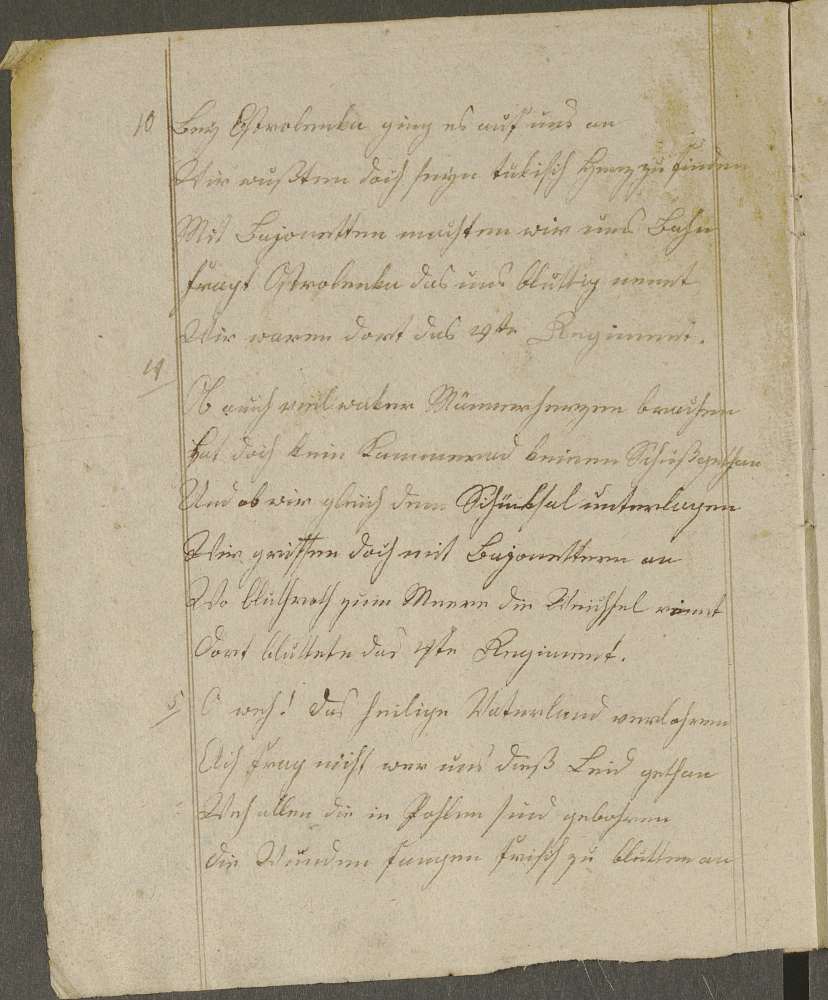 10 Bey Ostrolenka ging es auf uns an
Wir wußten doch sein tükisch Herz zu finden
Mit Bajonetten machten wir uns Bahn
fragt Ostrolenka das uns bluttig nennt
Wir waren dort das 4te Regiment.
Ob auch viel waker Männerherzen brachen
Hat doch kein Kammerad keinen Schuß gethan
Und ob wir gleich dem Schüksal unterlagen
Wir griffen doch mit Bajonettern an
Wo bluthroth zum Meere die Weichsel rinnt
Dort bluttete das 4te Regiment.
5 O weh! das heilige Vaterland verlohren
Ach frag nicht wer uns dieß Leid gethan
Weh allen die in Pohlen sind gebohren
die Wunden fangen frisch zu blutten an